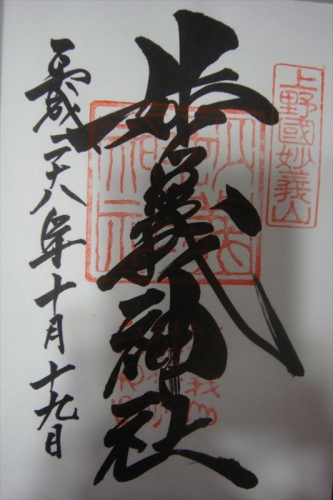 上野國妙義山
妙義神社
平成二十八年十月十九日